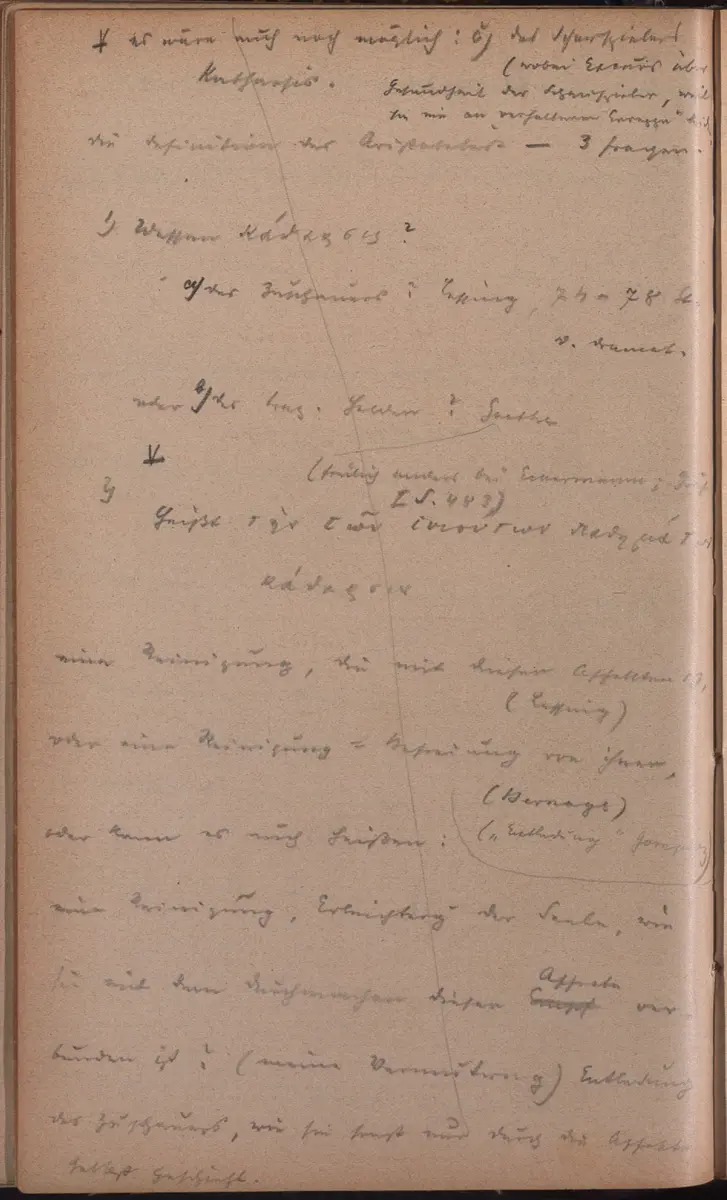 V es wäre auch noch möglich: c) des Schauspielers
Katharsis.
(wobei Exkurs über
Gesundheit der Schauspieler, weil
sie nie an verhaltenem
die Definition des Aristoteles — 3 Fragen.
1) Wessen κάθαρσις?
a) des Zuschauers? Lessing, 74–78 St.
d. Dramat.
oder b) des trag. Helden? Goethe
V
(freilich anders bei Eckermann;
I S. 483)
2)
heißt τὴν τῶν τοιούτων παθημάτων
κάθαρσιν
eine Reinigung, die mit diesen Affekten ist,
(Lessing)
oder eine Reinigung = Befreiung von ihnen,
(Bernays)
oder kann es auch heißen: („Entladung“ Gomperz)
eine Reinigung, Erleichterg der Seele, wie
sie mit dem Durchmachen dieser Affecte ver-
bunden ist? (meine Vermutung) Entladung
des Zuschauers, wie sie sonst nur durch die Affekte
selbst geschieht.